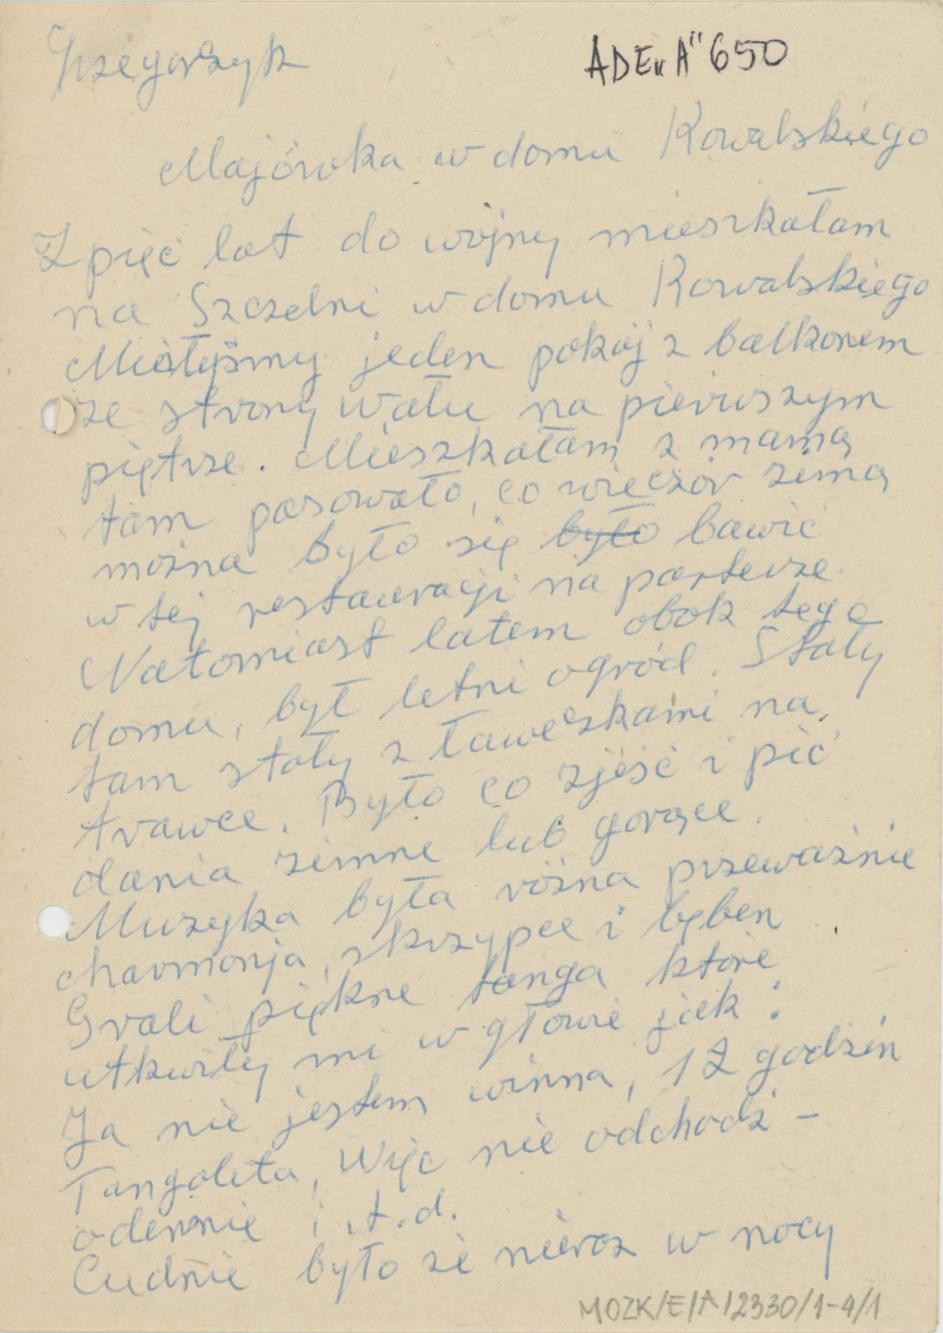 Grzegorczyk
ADE„A"650
Majówka w domu Kowalskiego
Z pięć lat do wojny mieszkałam
na Szczelni w domu Kowalskiego
Miałyśmy jeden pokój z balkonem
ze strony Wału na pierwszym
piętrze. Mieszkałam z mamą
tam pasowało, co wieczór zimą
można było się było bawić
w tej restauracji na parterze.
Natomiast latem obok tego
domu, był letni ogród. Stały
tam stoły z ławeczkami na
trawce. Było co zjeść i pić
dania zimne lub gorące.
Muzyka była różna przeważnie
charmonja, skrzypce i bęben
Grali piękne tanga które
utkwiły mi w głowie jak:
Ja nie jestem winna, 12 godzin
Tangolita, Więc nie odchodź –
odemnie i t.d.
Cudnie było że nieraz w nocy
MOZK/E/A/2330/1-4/1